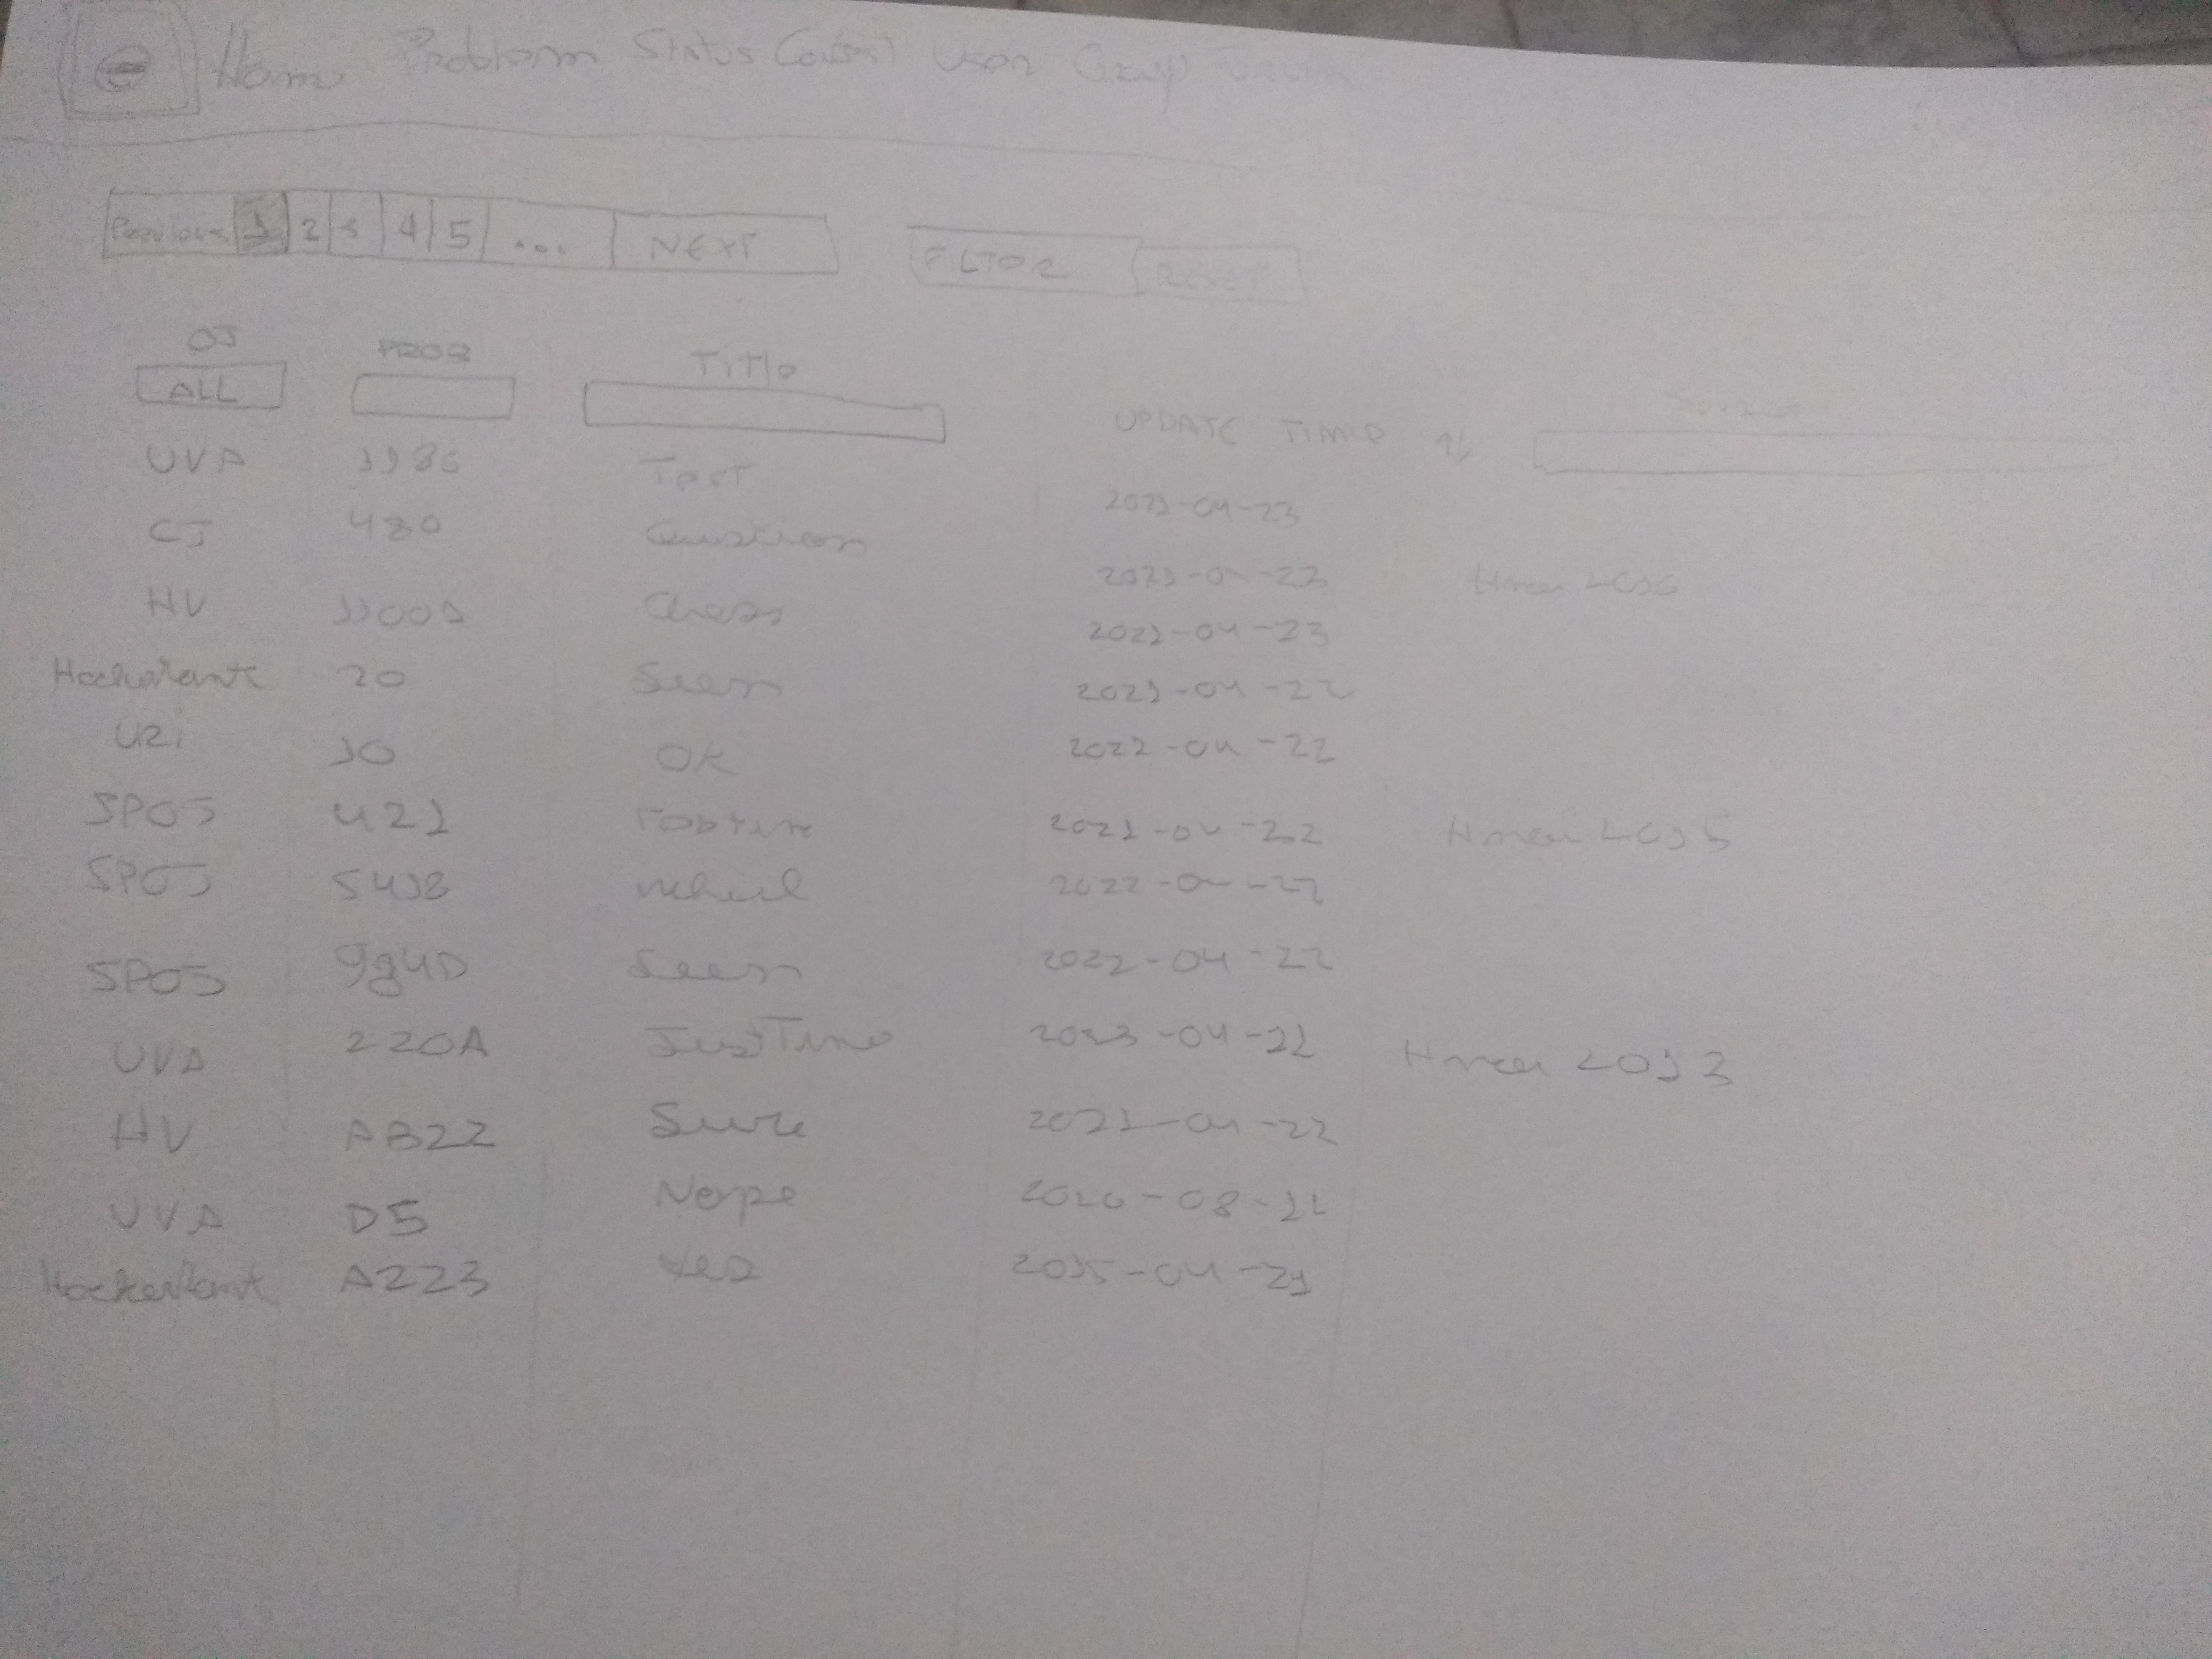 e Home Problem Status Contest User Group Forum
Previous 1 2 3 4 5 ... NEXT FILTOR RESET
OJ PROB Title UPDATE TIME ↑↓
ALL
UVA 1986 Test 2021-04-23
CJ 480 Question 2021-04-23
HV 11001 Chess 2021-04-23
20 Seen 2021-04-22
URi 10 OK 2022-04-22
SPOJ 421 2021-04-22
SPOJ 5418 2022-04-22
SPOJ Seen 2022-04-22
UVA 220A Just Time 2023-04-22 2013
HV AB22 Sure 2021-04-22
UVA D5 Nope 2020-08-21
A223 Yes 2015-04-21